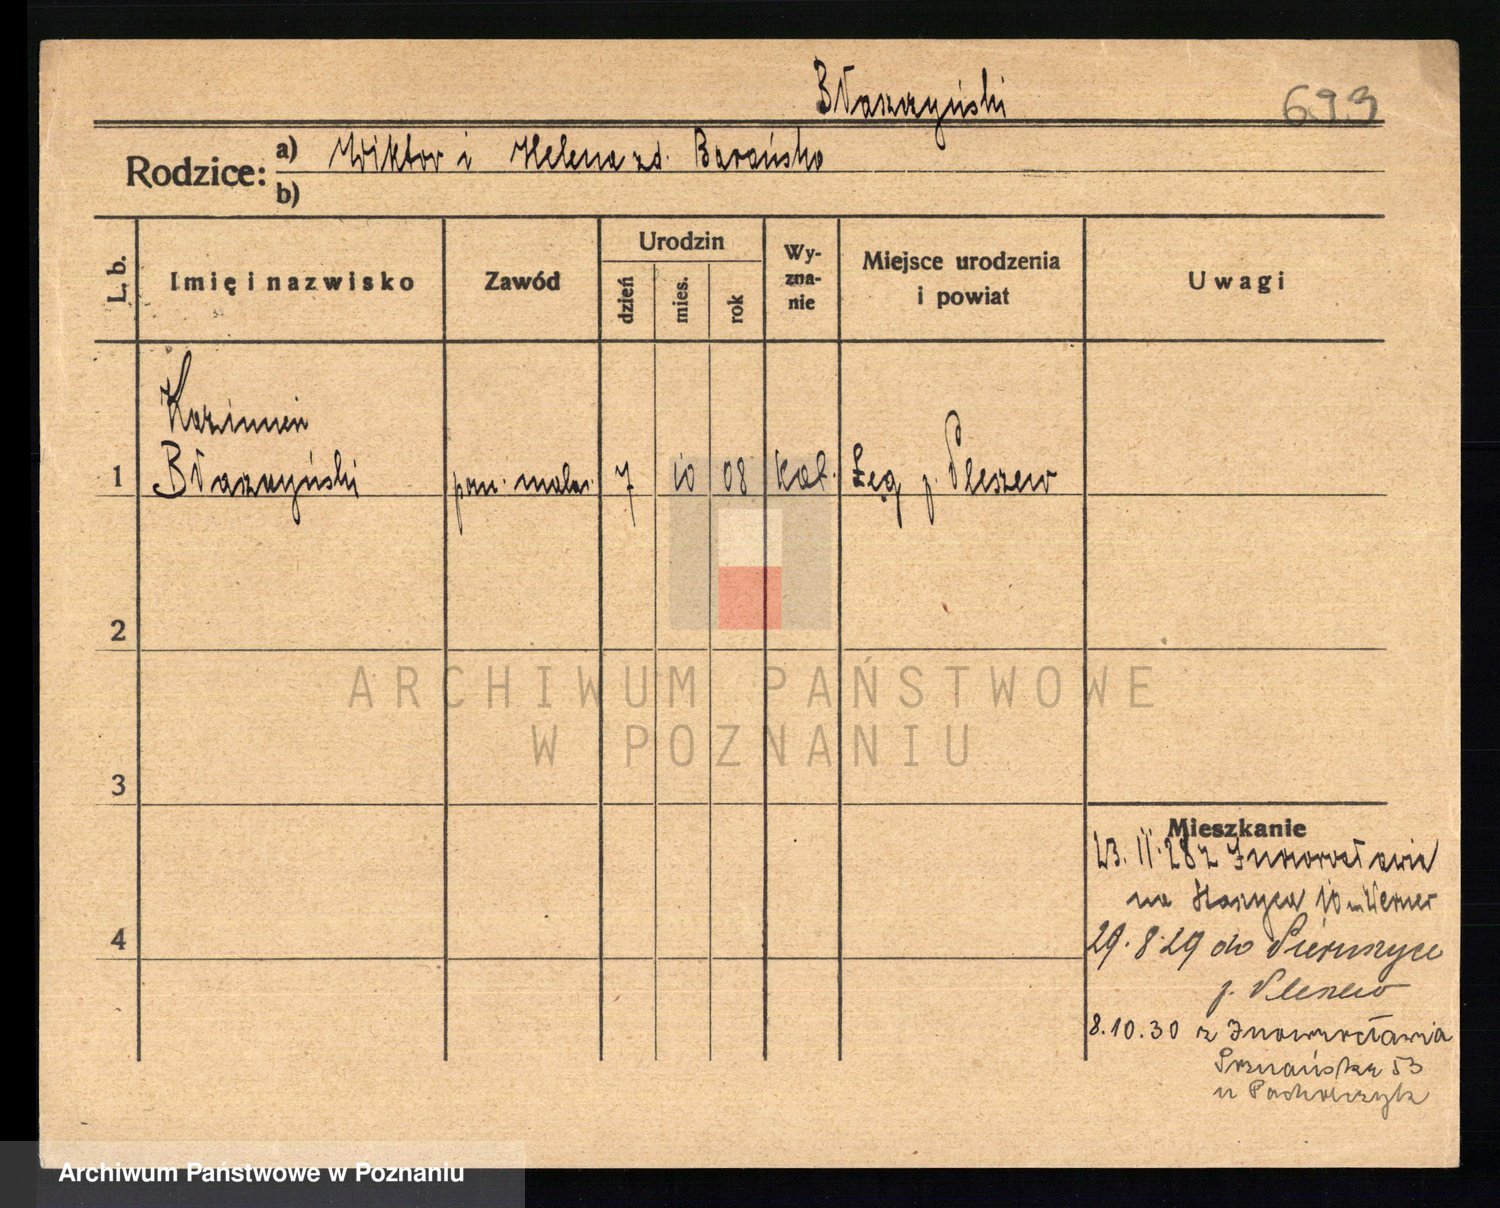 Błaszczyński
693
Rodzice: a) Wiktor i Helena zd. Barańska
b)
L. b.
Imię i nazwisko
Zawód
Urodzin
dzień
mies.
rok
Wy-
zna-
nie
Miejsce urodzenia
i powiat
Uwagi
Kazimierz
1 Błaszczyński pom. malar. 7 10 08 kat. Łęg p. Pleszew
2
ARCHIWUM PAŃSTWOWE
W POZNANIU
3
Mieszkanie
23. 11. 28 z Inowrocławia
na 10 Werner
4
29. 8. 29 do
p. Pleszew
8.10.30 z Inowrocławia
Poznańska 53
u Pacholczyk
Archiwum Państwowe w Poznaniu